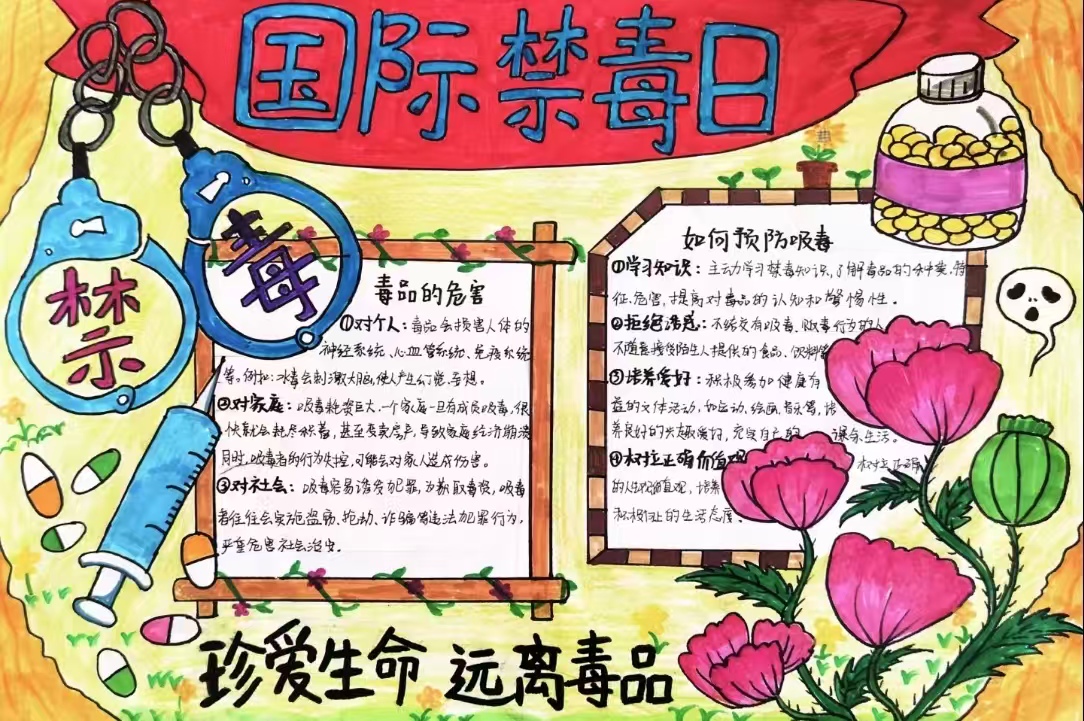 国际禁毒日
禁
毒
毒品的危害
①对个人：毒品会损害人体的
神经系统、心血管系统、免疫系统
等。例如：冰毒会刺激大脑，使人产生幻觉、妄想。
②对家庭：吸毒耗资巨大，一个家庭一旦有成员吸毒，很
快就会耗尽积蓄，甚至变卖房产，导致家庭经济崩溃
同时，吸毒者的行为失控，可能会对家人造成伤害。
③对社会：吸毒容易诱发犯罪，为获取毒资，吸毒
者往往会实施盗窃、抢劫、诈骗等违法犯罪行为，
严重危害社会治安。
如何预防吸毒
①学习知识：主动学习禁毒知识，了解毒品的种类、特
征、危害，提高对毒品的认知和警惕性。
②拒绝诱惑：不结交有吸毒、贩毒行为的人
不随意接受陌生人提供的食品、饮料等
③培养爱好：积极参加健康有
益的文体活动，如运动、绘画、书写，培
养良好的兴趣爱好，充实自己的 课余生活。
④树立正确价值观 树立正确
的人生观价值观，培养
积极向上的生活态度。
珍爱生命 远离毒品